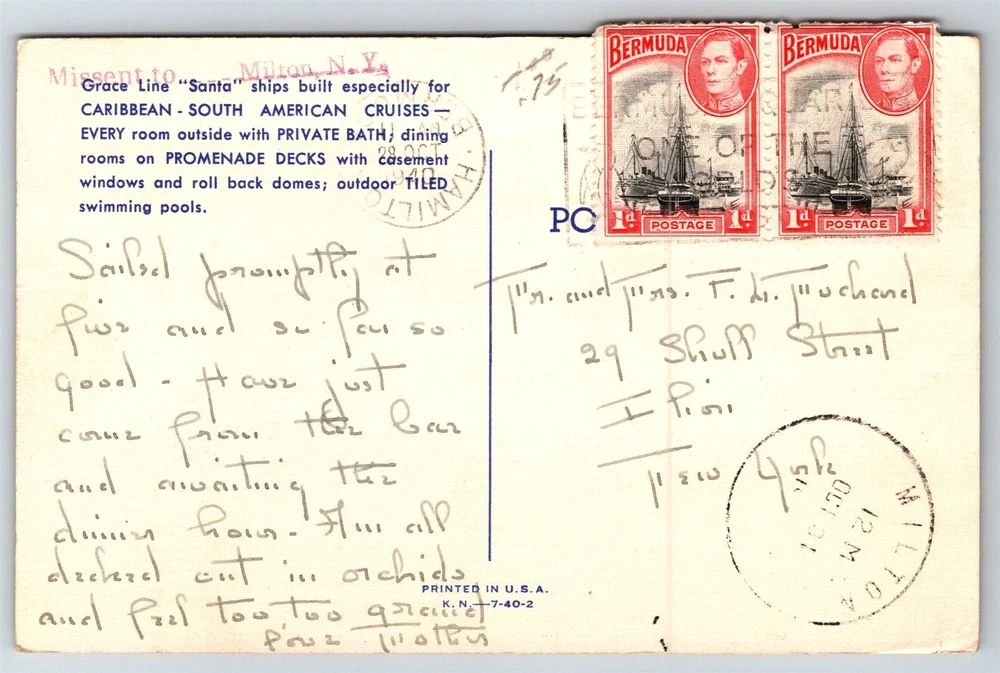 Missent to ---- Milton, N. Y.
Grace Line "Santa" ships built especially for
CARIBBEAN - SOUTH AMERICAN CRUISES —
EVERY room outside with PRIVATE BATH; dining
rooms on PROMENADE DECKS with casement
windows and roll back domes; outdoor TILED
swimming pools.
HAMILTON
BERMUDA
28 OCT
1940
75
BERMUDA
BERMUDA
ONE OF THE
1d POSTAGE 1d
1d POSTAGE 1d
PO
Sailed promptly at
five and so far so
good - Have just
come from the bar
and awaiting the
dinner hour - Am all
decked out in orchids
and feel too too grand
Love Mother
Mr. and Mrs. F. H.
29 Shull Street
Ilion
New York
MILTON
OCT 31
12 M
PRINTED IN U.S.A.
K. N.—7-40-2